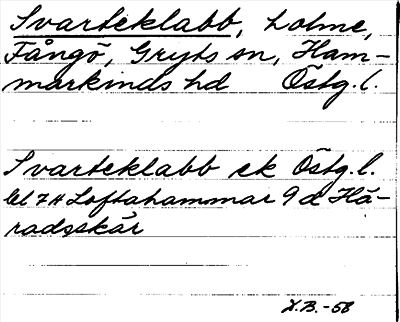 Svarteklabb, holme,
Fångö, Gryts sn, Ham-
markinds hd Östg.l.
Svarteklabb ek Östg.l.
bl 7H Loftahammar 9 d Hä-
radsskär
X.B.-58